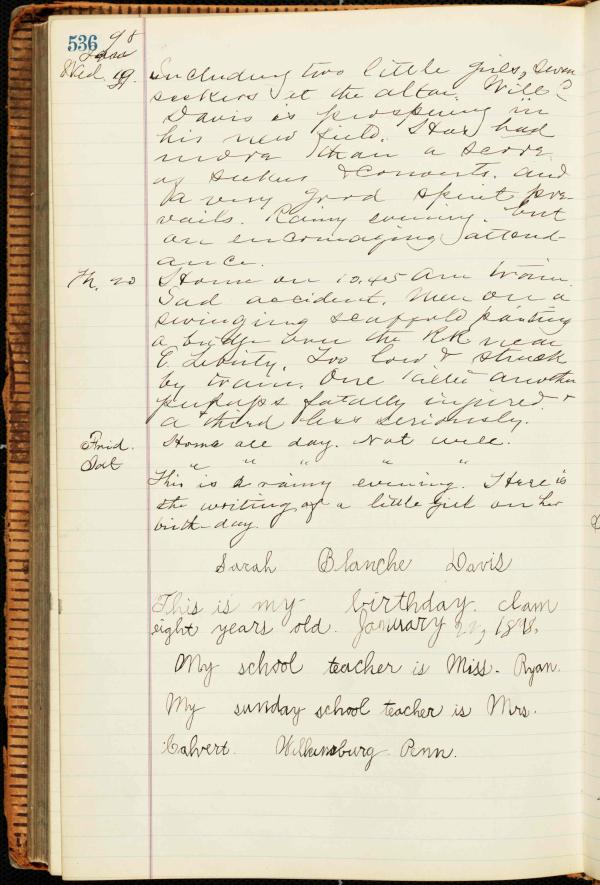 536 98
Jan
Wed. 19. including two little girls, seven
seekers at the altar. Will
Davis is prospering in
his new field. Has had
more than a score
of seekers & converts. and
a very good spirit pre-
vails. Rainy evening. but
an encouraging attend-
ance.
Th. 20 Home on 10.45 am train.
Sad accident. Men on a
swinging scaffold painting
a bridge over the RR near
E. Liberty. Too low & struck
by train. One killed another
perhaps fatally injured &
a third less seriously.
Frid. Home all day. Not well.
Sat " " " " "
This is a rainy evening. Here is
the writing of a little girl on her
birth-day.
Sarah Blanche Davis
This is my birthday. I am
eight years old. January 22, 1898.
My school teacher is Miss. Ryan.
My sunday school teacher is Mrs.
Calvert. Williamsburg Penn.